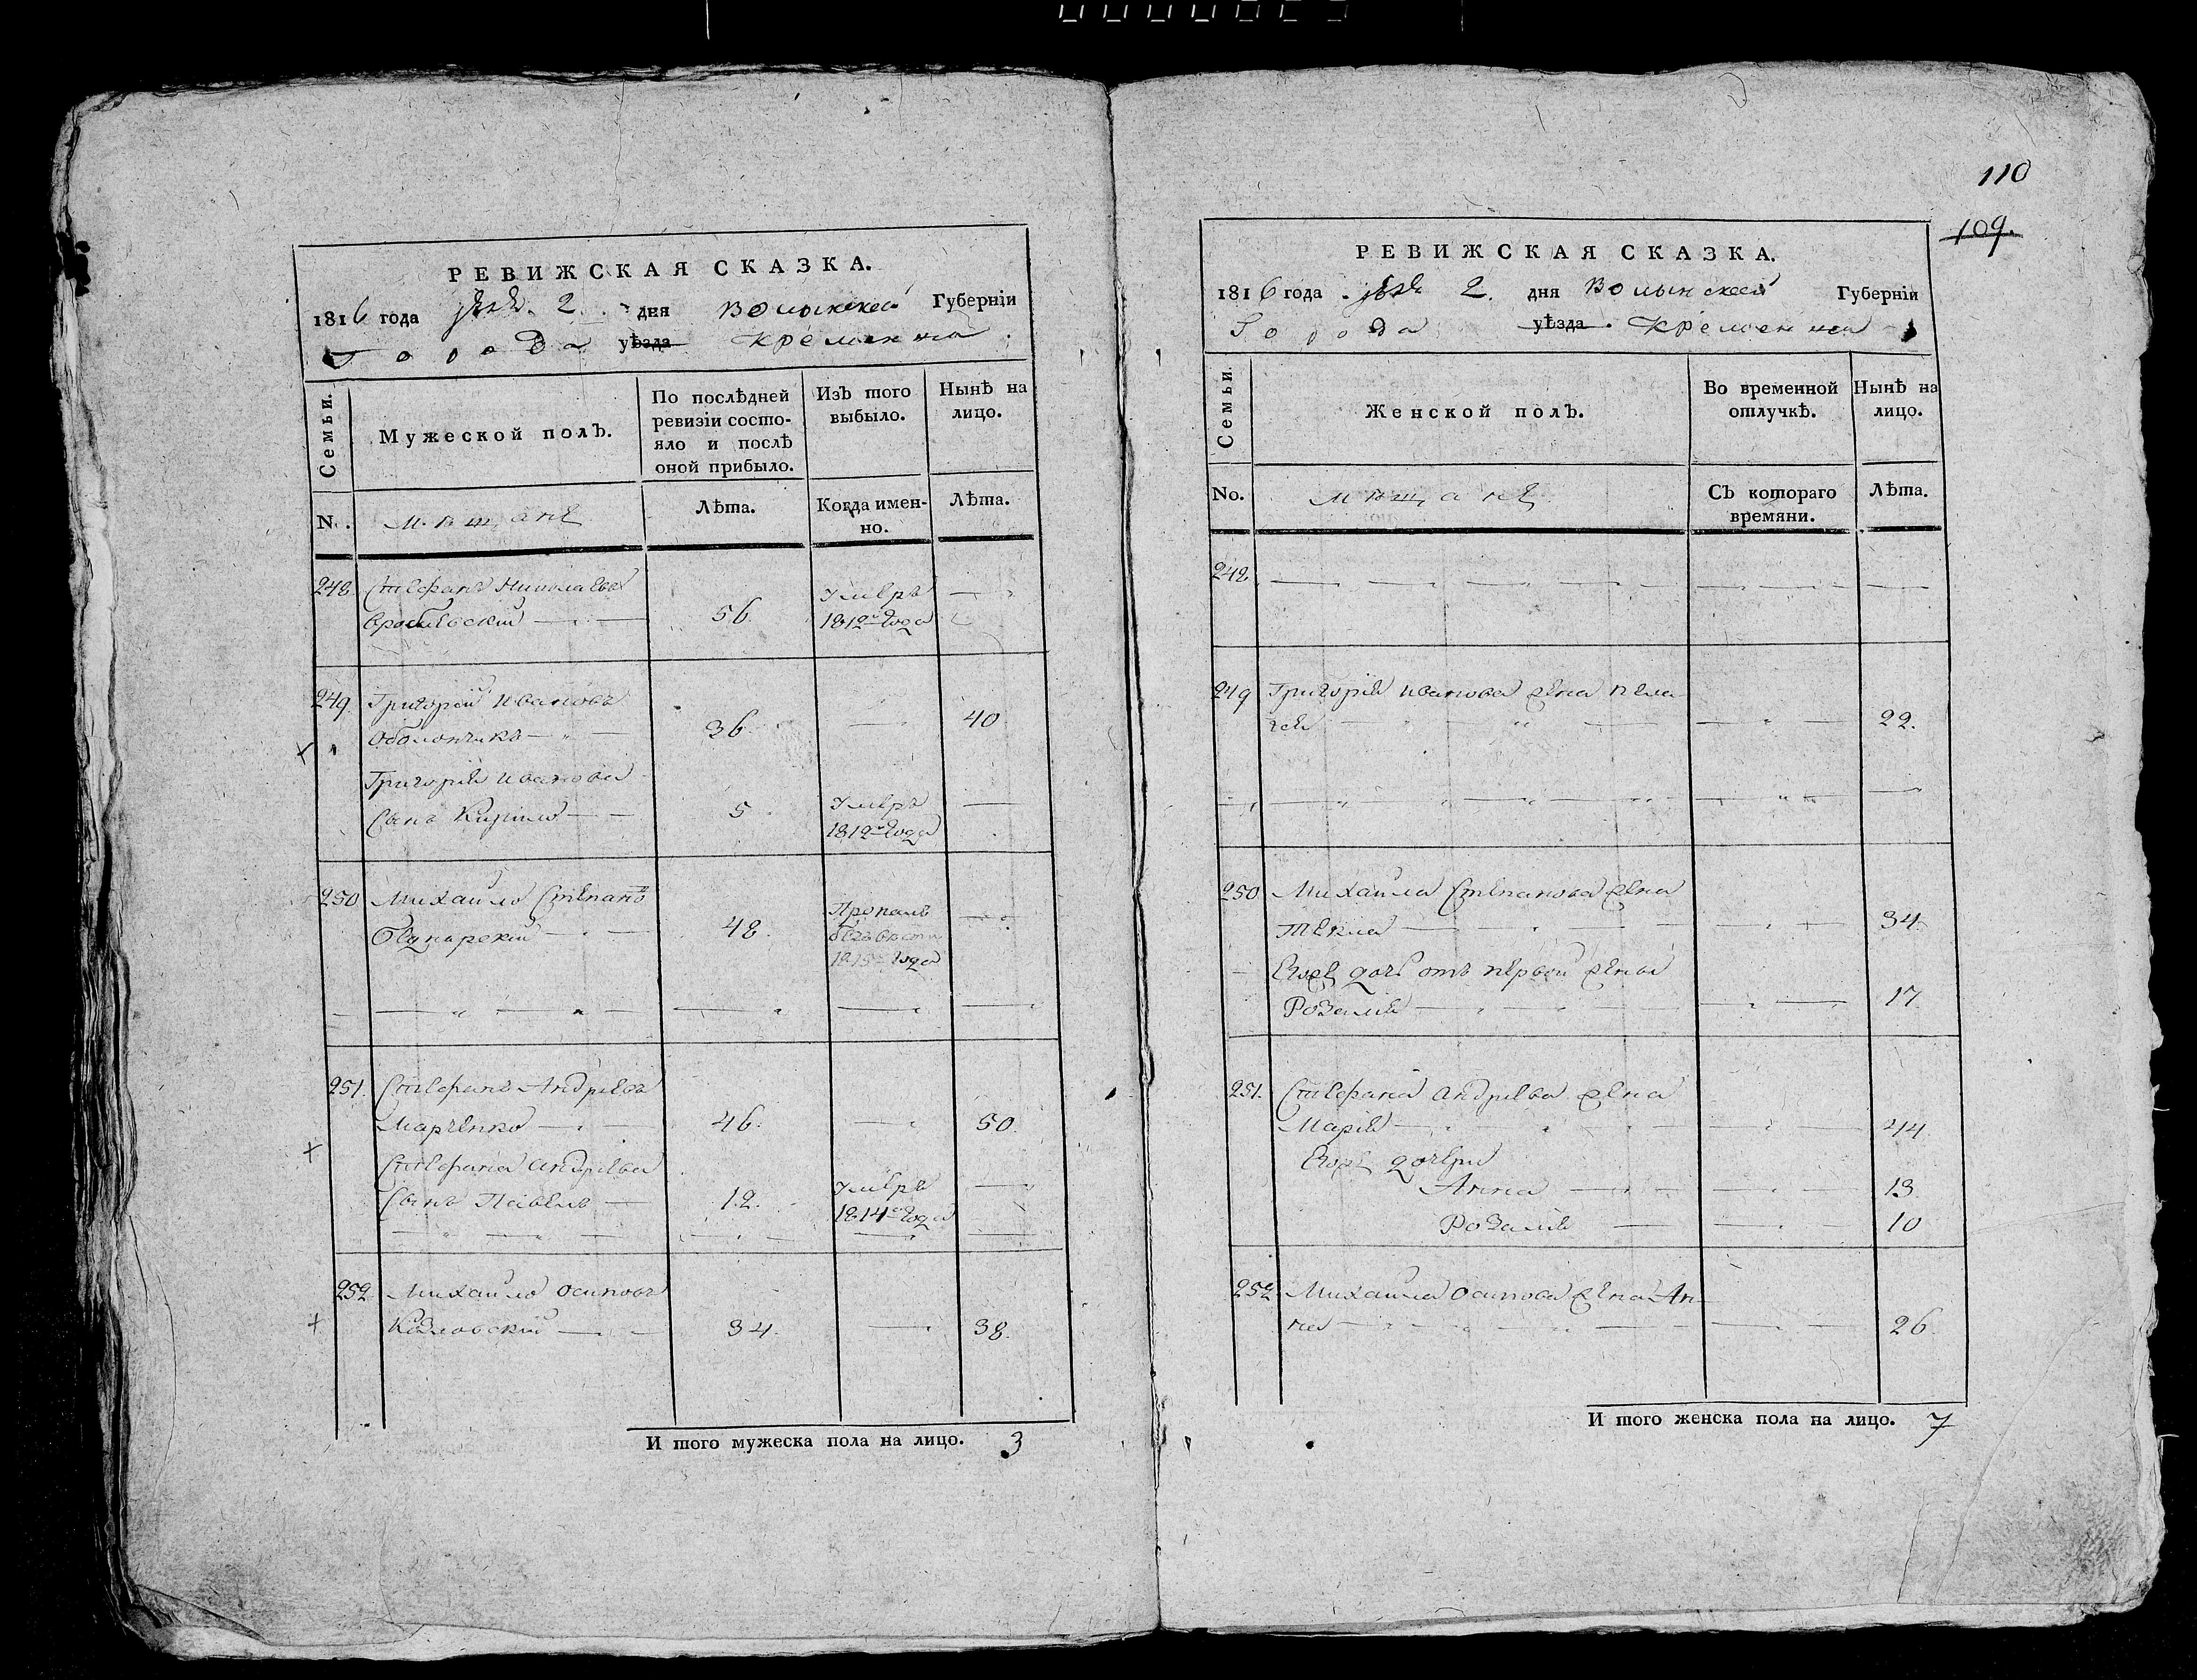 110
109.
РЕВИЖСКАЯ СКАЗКА.
1816 года 2. дня Волынской Губерніи
Города уѣзда Кременца.
Семьи.
Мужеской полъ.
По послѣдней ревизіи состояло и послѣ оной прибыло.
Изъ того выбыло.
Нынѣ на лицо.
N.
мѣщане
Лѣта.
Когда именно.
Лѣта.
248 Стефанъ Николаевъ Умеръ —
56. 1812го Года
249. Григорій Ивановъ
36 — 40
Григорія Иванова
Сынъ Кирило — 5 Умеръ —
1812го Года
250 Михайло Степановъ Пропалъ
48. безвѣсти —
1815го Года
251. Стефанъ Андреевъ
Марченко — 46. — 50.
Стефана Андреева
Сынъ Павелъ — 12. Умеръ —
1814го Года
252 Михайло Осиповъ
Козловскій — 34. — 38.
И того мужеска пола на лицо. 3
РЕВИЖСКАЯ СКАЗКА.
1816 года 2. дня Волынской Губерніи
Города уѣзда. Кременца
Семьи.
Женской полъ.
Во временной отлучкѣ.
Нынѣ на лицо.
No.
мѣщане
Съ котораго времяни.
Лѣта.
248 — — —
249 Григорія Иванова жена Пела-
гея — — 22.
250 Михайла Степанова жена
Текла — — 34.
Его же дочь отъ первой жены
Розалія — — 17.
251. Стефана Андреева жена
Марія — — 44
Его же дочери
Анна — — 13.
Розалія — — 10
252 Михайла Осипова жена Ан-
на — — 26.
И того женска пола на лицо. 7